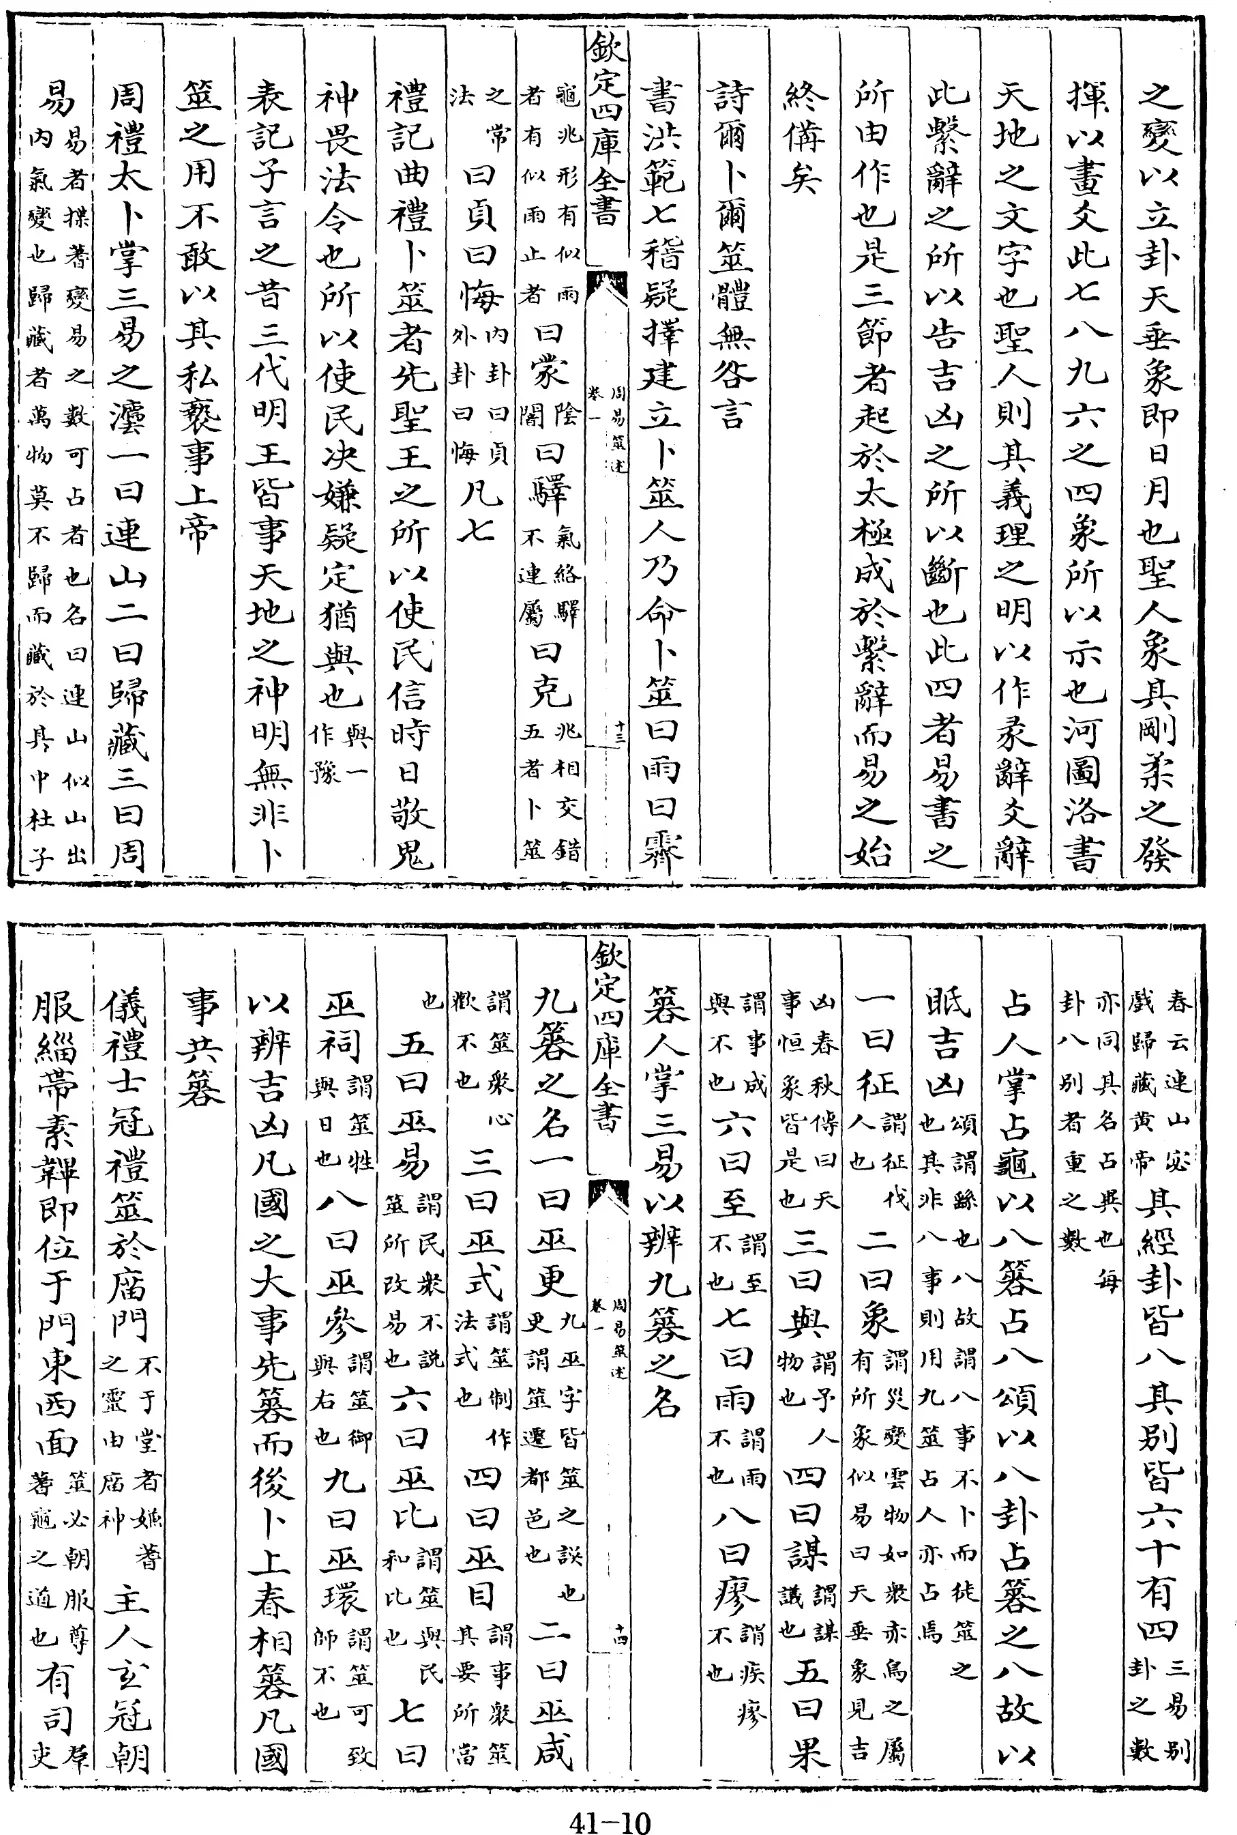 之變以立卦天垂象即日月也聖人象其剛柔之發
揮以畫爻此七八九六之四象所以示也河圖洛書
天地之文字也聖人則其義理之明以作彖辭爻辭
此繫辭之所以告吉凶之所以斷也此四者易書之
所由作也是三節者起於太極成於繫辭而易之始
終備矣
詩爾卜爾筮體無咎言
書洪範七稽疑擇建立卜筮人乃命卜筮曰雨曰霽
欽定四庫全書 周易筮述 卷一 十三
龜兆形有似雨者有似雨止者曰蒙陰闇曰驛氣絡驛不連屬曰克兆相交錯五者卜筮
之常法曰貞曰悔內卦曰貞外卦曰悔凡七
禮記曲禮卜筮者先聖王之所以使民信時日敬鬼
神畏法令也所以使民決嫌疑定猶與也與一作豫
表記子言之昔三代明王皆事天地之神明無非卜
筮之用不敢以其私褻事上帝
周禮太卜掌三易之灋一曰連山二曰歸藏三曰周
易易者揲蓍變易之數可占者也名曰連山似山出內氣變也歸藏者萬物莫不歸而藏於其中杜子
春云連山宓戲歸藏黄帝其經卦皆八其別皆六十有四三易別卦之數
亦同其名占異也每卦八別者重之數
占人掌占龜以八簭占八頌以八卦占簭之八故以
眡吉凶頌謂繇也八故謂八事不卜而徒筮之也其非八事則用九筮占人亦占焉
一曰征謂征伐人也二曰象謂災變雲物如衆赤烏之屬有所象似易曰天垂象見吉
凶春秋傳曰天事恒象皆是也三曰與謂予人物也四曰謀謂謀議也五曰果
謂事成與不也六曰至謂至不也七曰雨謂雨不也八曰瘳謂疾瘳不也
簭人掌三易以辨九簭之名
欽定四庫全書 周易筮述 卷一 十四
九簭之名一曰巫更九巫字皆筮之誤也更謂筮遷都邑也二曰巫咸
謂筮衆心歡不也三曰巫式謂筮制作法式也四曰巫目謂事衆筮其要所當
也五曰巫易謂民衆不說筮所改易也六曰巫比謂筮與民和比也七曰
巫祠謂筮牲與日也八曰巫參謂筮御與右也九曰巫環謂筮可致師不也
以辨吉凶凡國之大事先簭而後卜上春相簭凡國
事共簭
儀禮士冠禮筮於廟門不于堂者嫌蓍之靈由廟神主人玄冠朝
服緇帶素韠即位于門東西面筮必朝服尊蓍龜之道也有司羣吏
41-10